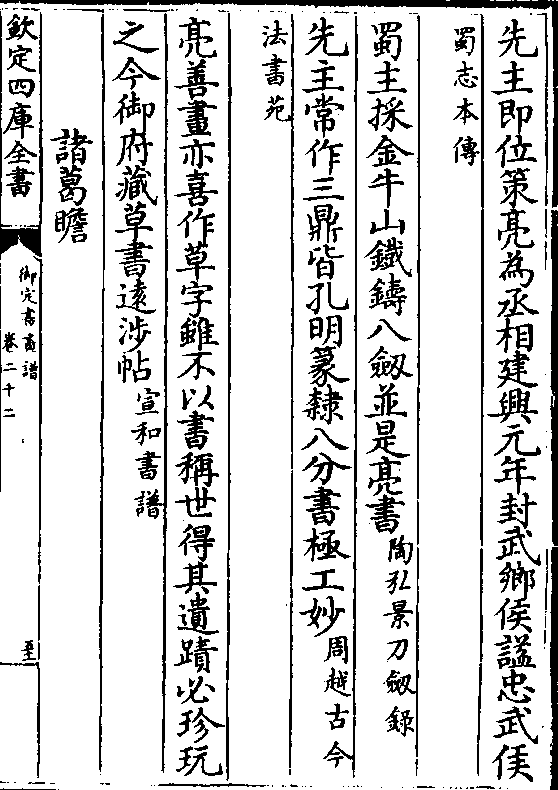 先主即位策亮為丞相建興元年封武鄉侯諡忠武侯
蜀志本傳
蜀主採金牛山鐵鑄八劒並是亮書陶弘景刀劒錄
先主常作三鼎皆孔明篆隸八分書極工妙周越古今
法書苑
亮善畫亦喜作草字雖不以書稱世得其遺蹟必珍玩
之今御府藏草書遠涉帖宣和書譜
諸葛瞻
欽定四庫全書
御定書畫譜
卷二十二